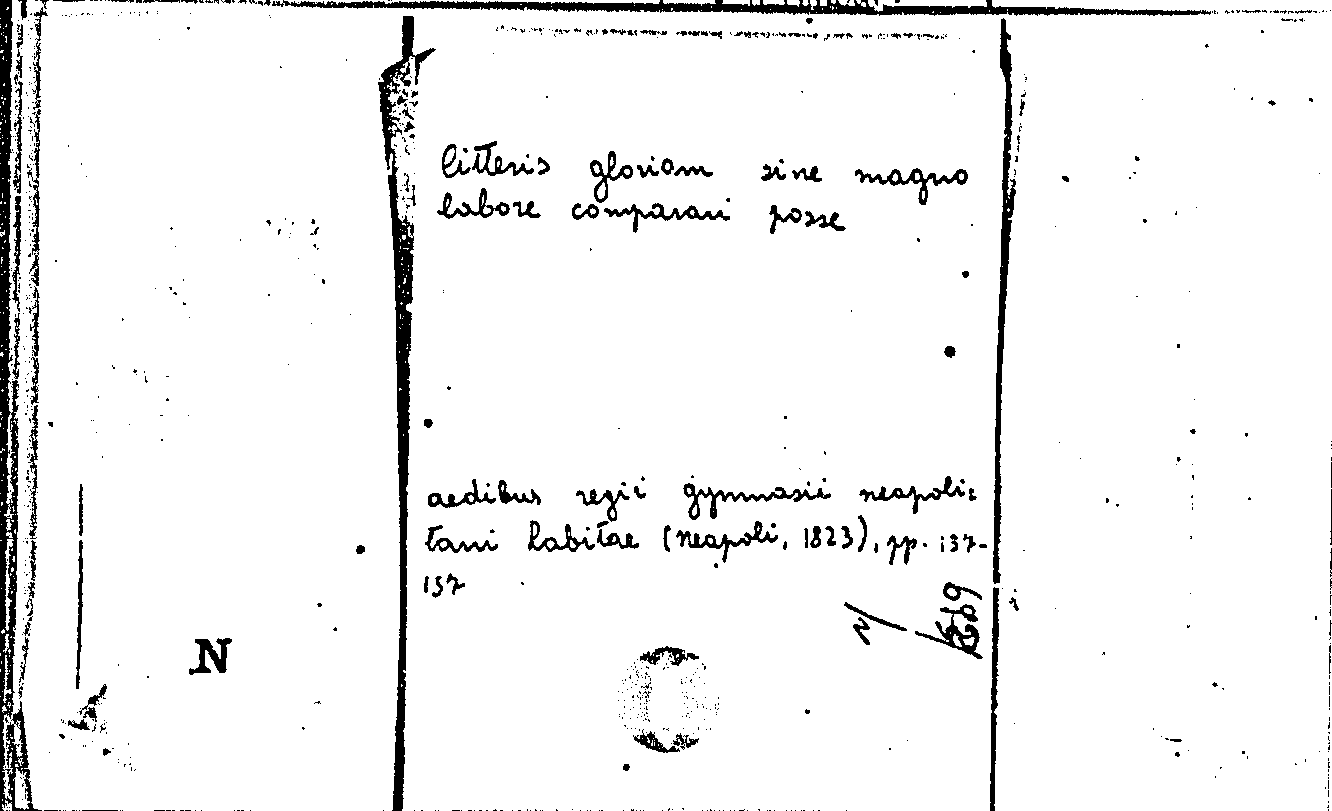 litteris gloriam sine magno
labore comparari posse
aedibus regii gymnasii neapoli=
tani habitae (Neapoli, 1823), pp. 137-
157
N